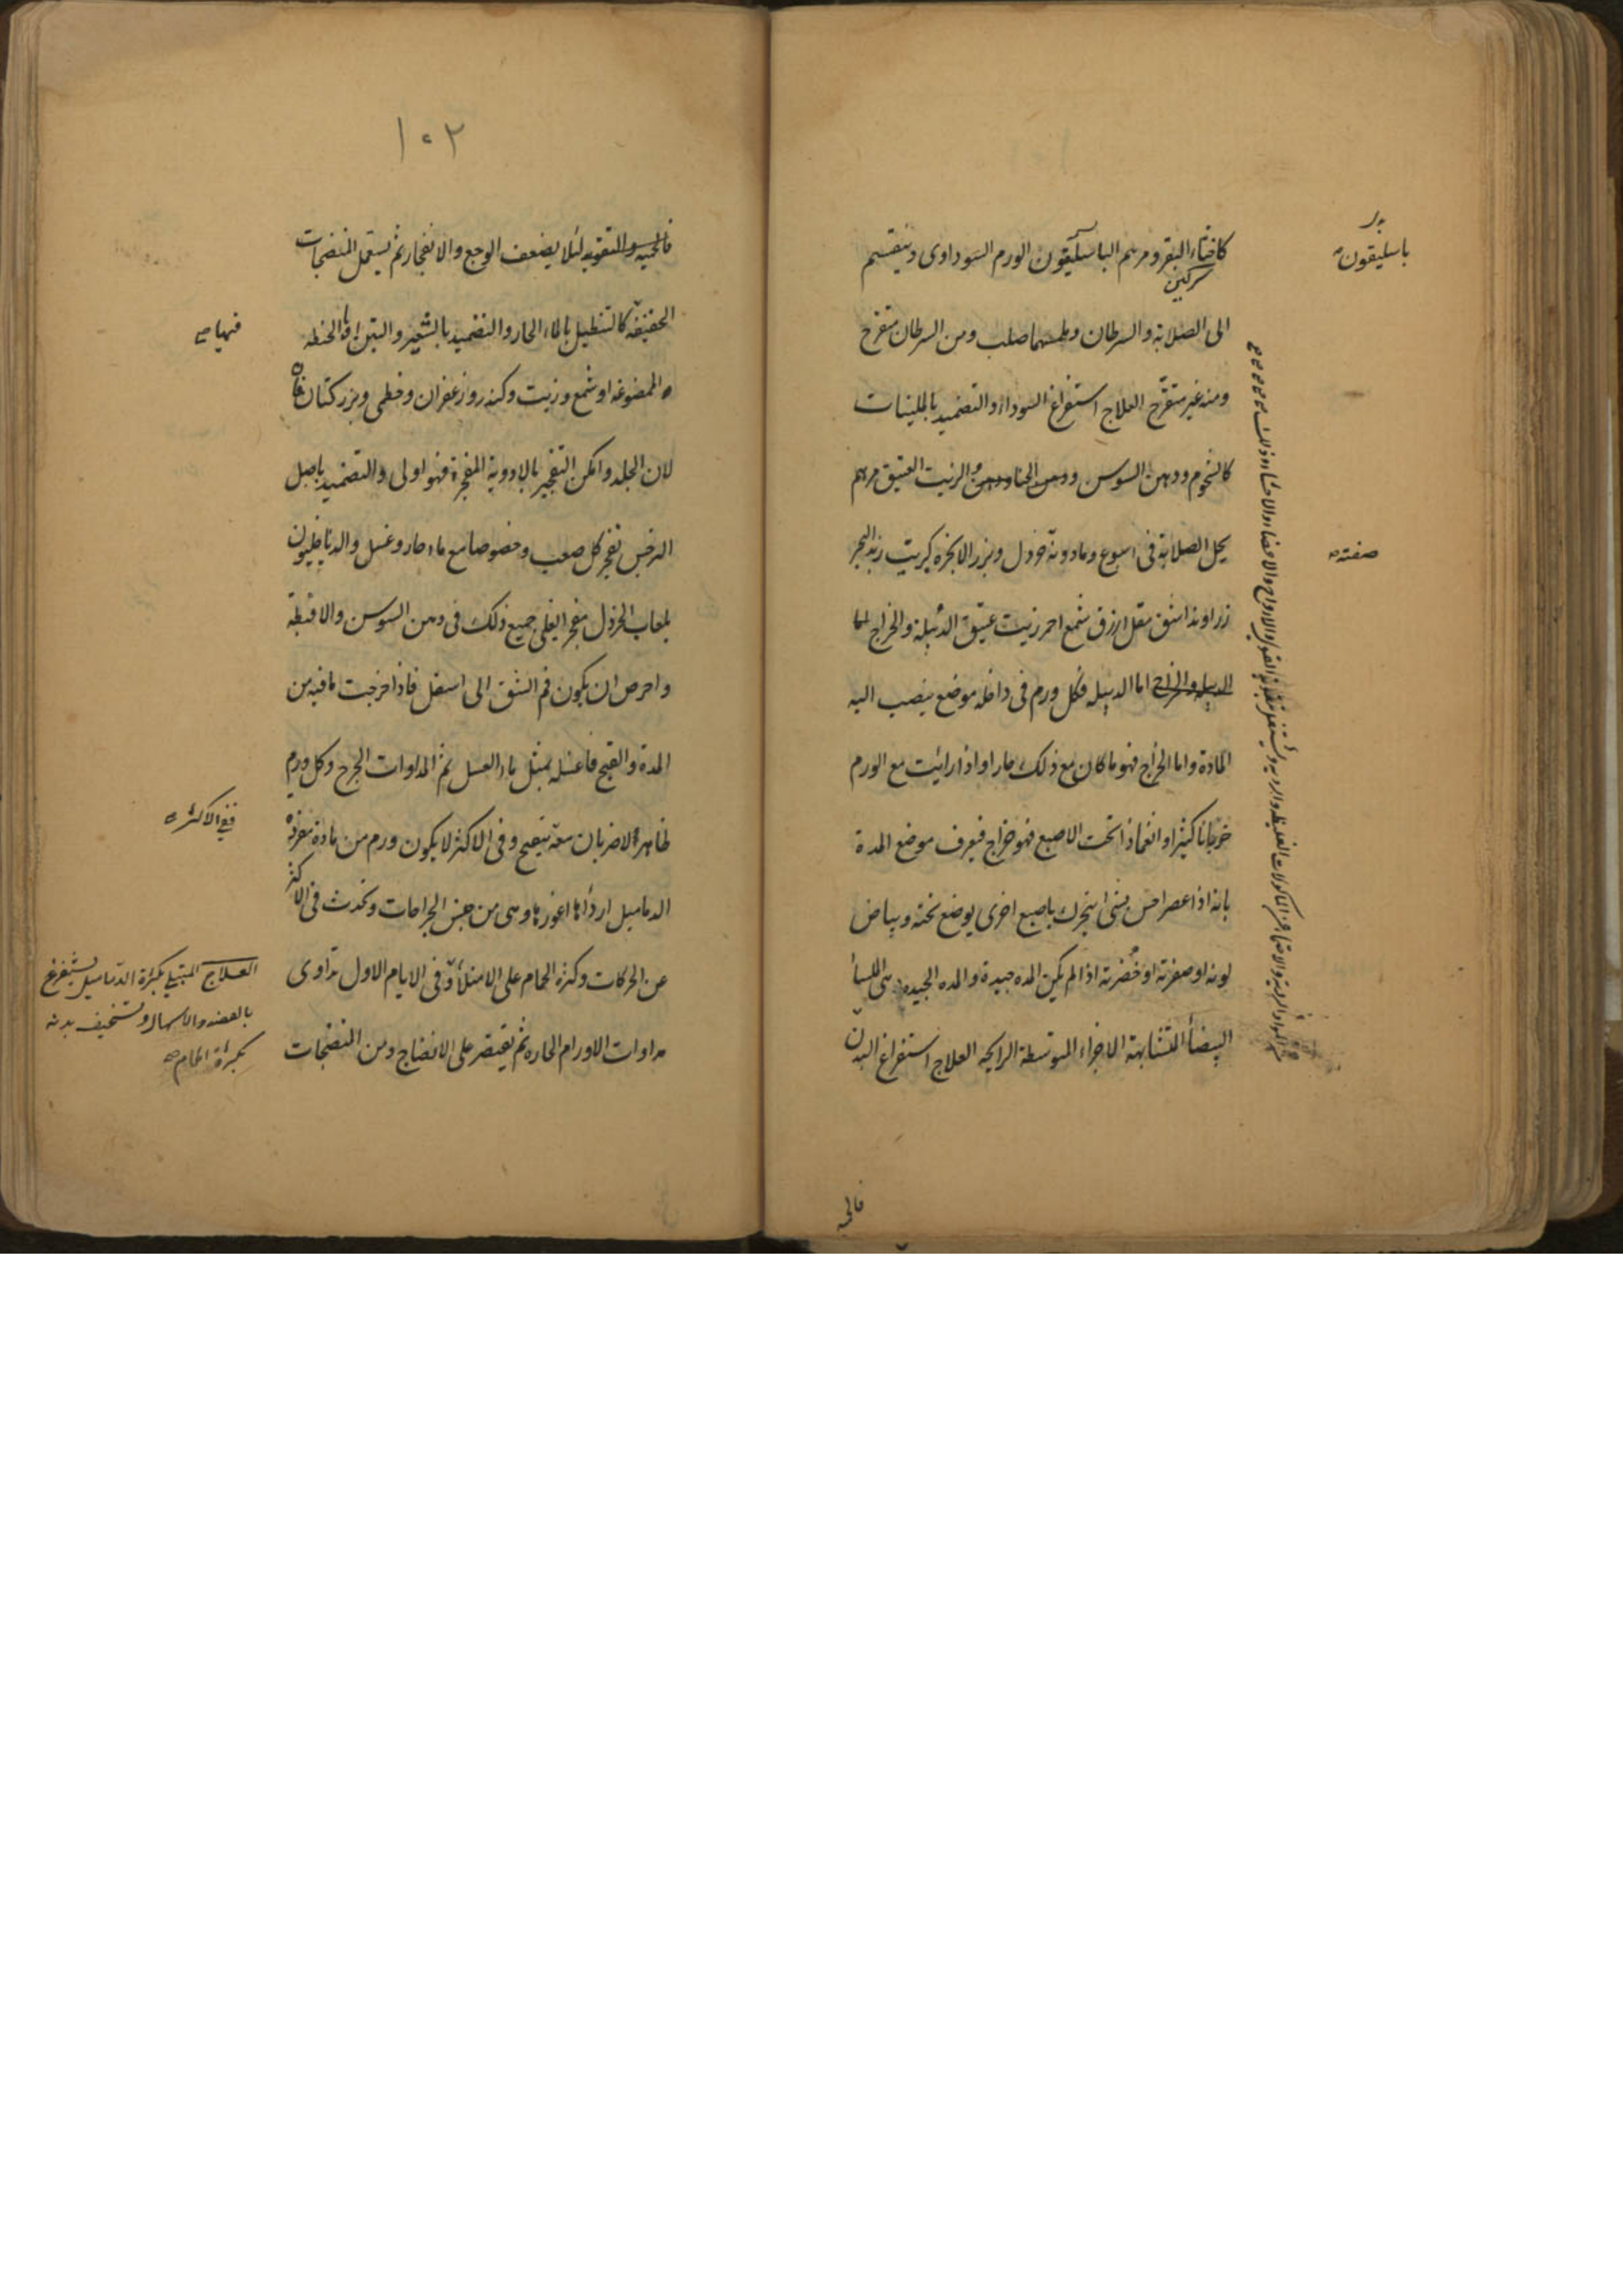 كاخثاء البقر ومرهم الباسليقون الورم السوداوى وينقسم
سركين
الى الصلابة والسرطان وملمسهما صلب ومن السرطان متقرح
ومنه غير متقرح العلاج استفراغ السوداء والتضميد بالملينات
كالشحوم ودهن السوس ودهن الحنا ودهن الزيت العتيق مرهم
يحل الصلابة فى اسبوع ومادونه خردل وبزر الانجره كبريت زبد البحر
زراوند اشق مقل ازرق شمع احمر زيت عتيق الدبيلة والخراج لما
الدبيله والخراج اما الدبيله فكل ورم فى داخله موضع ينصب اليه
المادة واما الخراج فهو ما كان مع ذلك حارا واذا رايت مع الورم
ضربانا كثيرا وانغمازا تحت الاصبع فهو خراج فيعرف موضع المدة
بانه اذا عصر احس بشى يتحرك باصبع اخرى يوضع تحته وبياض
لونه او صفرته او خضرته اذا لم يكن المده جيدة والمده الجيده هى الملسا
البيضأ المتشابهة الاجزاء المتوسطة الرايحه العلاج استفراغ البدن
فالحميه
باسليقون
صفته
١٠٢
فالحميه والتقويه لئلا يضعف الوجع والانفجار ثم يستعمل المنضجات
الخفيفة كالتنطيل بالماء الحار والتضميد بالشعير والتين او بالحنطه
الممضوغه او شمع وزيت وكندر وزعفران وخطمى وبزر كتان فان
لان الجلد وامكن التفجير بالادوية المفجرة فهو اولى والتضميد باصل
النرجس يفجر كل صعب وخصوصا مع ماء حار وعسل والدياخليون
بلعاب الخردل مفجر ايغلى جميع ذلك فى دهن السوسن والاقبطه
واحرص ان يكون فم الشق الى اسفل فاذا خرجت ما فيه من
المدة والقيح فاغسله بمثل ماء العسل ثم المداوات الجرح وكل ورم
ظاهر لا ضربان معه يتقيح وفى الاكثر لا يكون ورم من مادة مفردة
الدماميل اردأها اغورها وهى من جنس الجراحات وتحدث فى الاكثر
عن الحركات وكثرة الحمام على الامتلأ وفى الايام الاول تداوى
مداوات الاورام الحاره ثم يقتصر على الانضاج ومن المنضجات
فنهيا
ففى الاكثر
العلاج المبتلى بكثرة الدماميل يستفرغ
بالفصد والاسهال وتستخيف بدنه
بكثرة الحمام